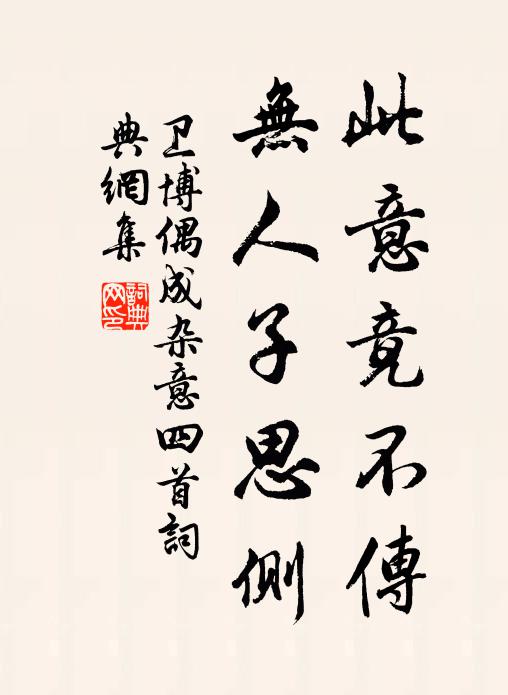 此意竟不傳
無人子思側
卫博偶成杂意四首詞
典網集
詞典
网印